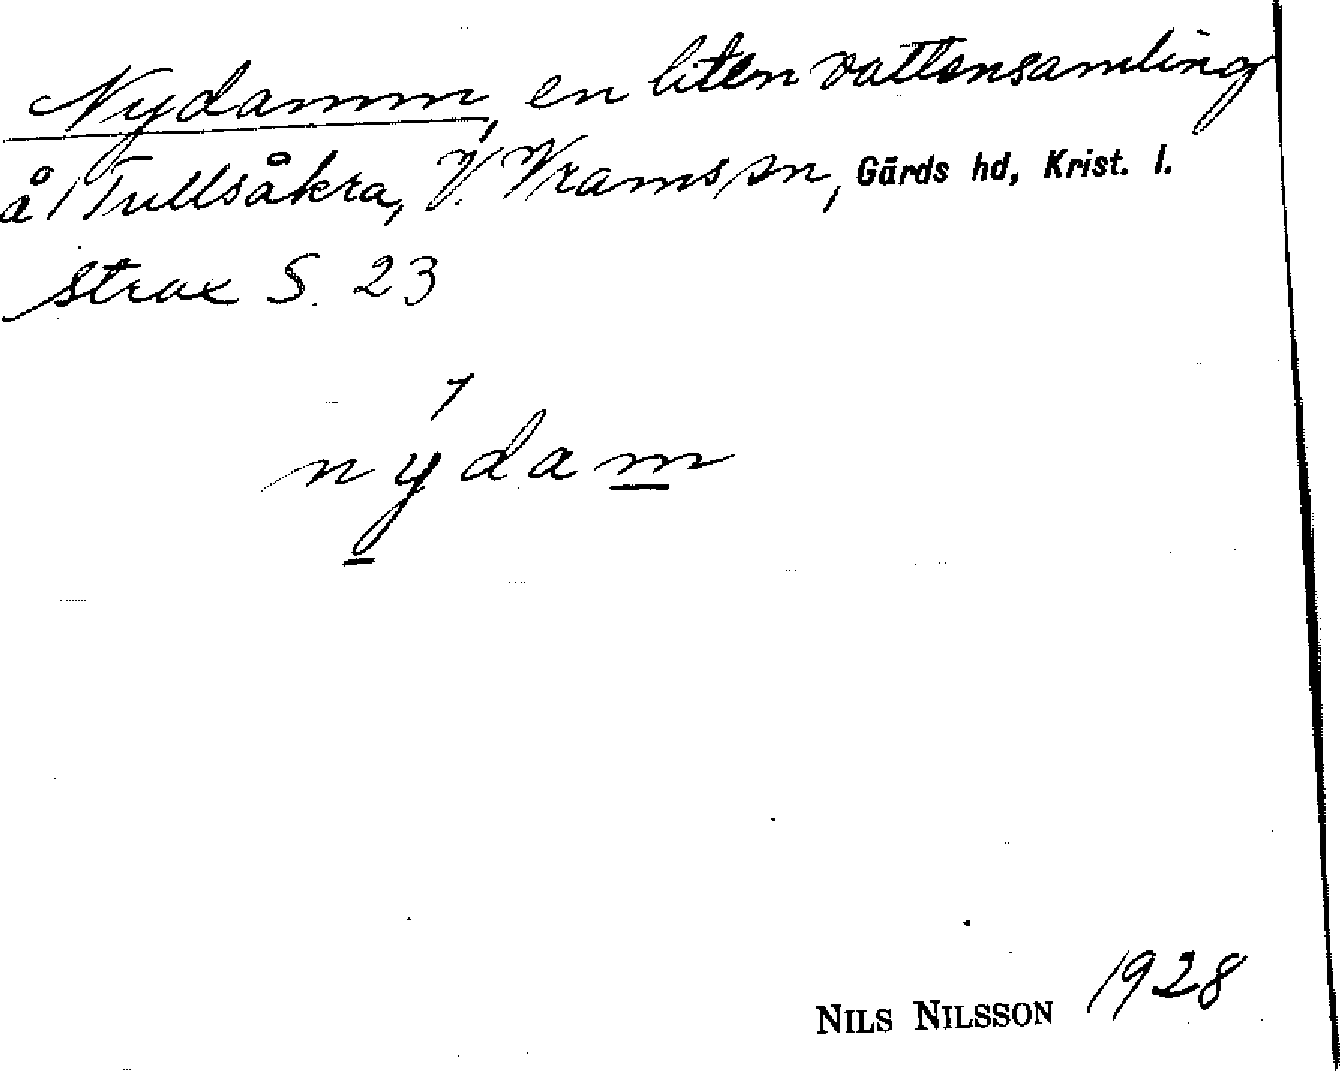 Nydamm, en liten vattensamling
å Tullsåkra, V. Vrams sn, Gärds hd, Krist. l.
strax S. 23
nýdam
NILS NILSSON 1928